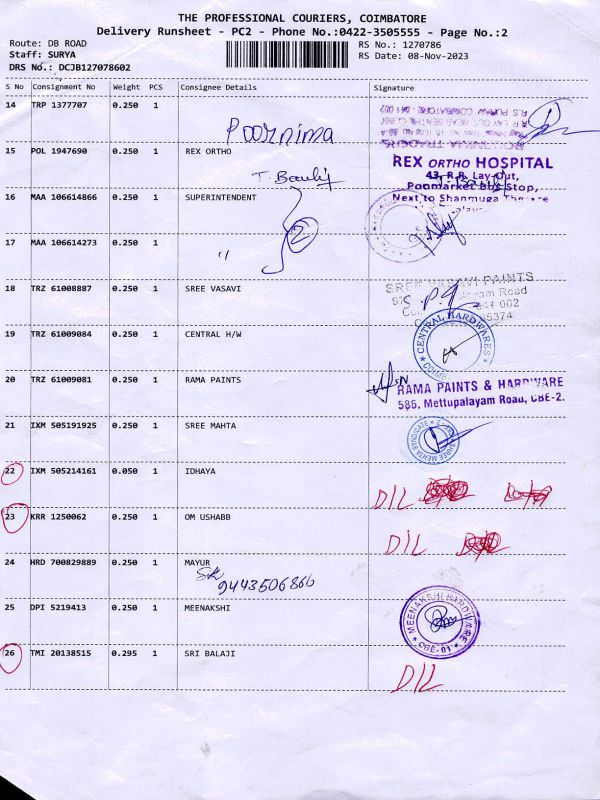 THE PROFESSIONAL COURIERS, COIMBATORE
Delivery Runsheet - PC2 - Phone No.:0422-3505555 - Page No.:2
Route: DB ROAD
Staff: SURYA
DRS No.: DCJB127078602
RS No.: 1270786
RS Date: 08-Nov-2023
S No Consignment No Weight PCS Consignee Details Signature
14 TRP 1377707 0.250 1
Poornima
15 POL 1947690 0.250 1 REX ORTHO
REX ORTHO HOSPITAL
43, R.R. Lay-Out,
Poomarket Bus Stop,
Next to Shanmuga
16 MAA 106614866 0.250 1 SUPERINTENDENT
2
17 MAA 106614273 0.250 1
"
18 TRZ 61008887 0.250 1 SREE VASAVI
SREE VASAVI PAINTS
19 TRZ 61009084 0.250 1 CENTRAL H/W
CENTRAL HARDWARES
20 TRZ 61009081 0.250 1 RAMA PAINTS
RAMA PAINTS & HARDWARE
586, Mettupalayam Road, CBE-2.
21 IXM 505191925 0.250 1 SREE MAHTA
22 IXM 505214161 0.050 1 IDHAYA
D/L
23 KRR 1250062 0.250 1 OM USHABB
D/L
24 HRD 700829889 0.250 1 MAYUR
9443506866
25 DPI 5219413 0.250 1 MEENAKSHI
MEENAKSHI HARDWARE
CBE-01
26 TMI 20138515 0.295 1 SRI BALAJI
D/L